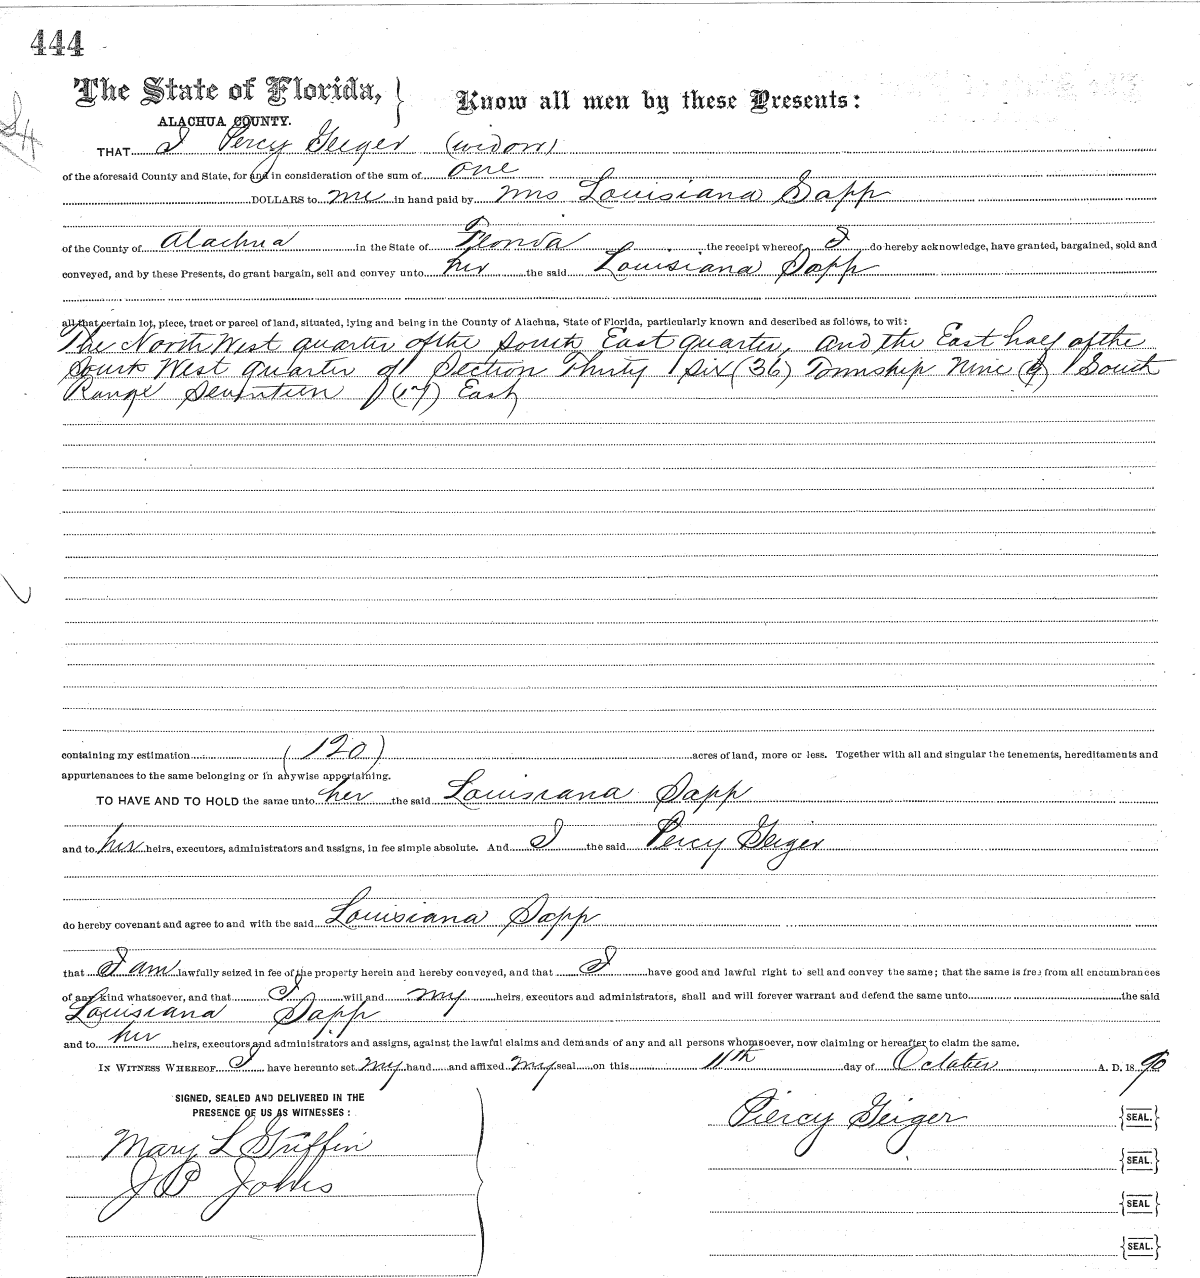 444
The State of Florida, } Know all men by these Presents:
ALACHUA COUNTY.
THAT I Percy Geiger (widow)
of the aforesaid County and State, for and in consideration of the sum of one
DOLLARS to me in hand paid by Mrs Louisiana Sapp
of the County of Alachua in the State of Florida the receipt whereof I do hereby acknowledge, have granted, bargained, sold and
conveyed, and by these Presents, do grant bargain, sell and convey unto her the said Louisiana Sapp
all that certain lot, piece, tract or parcel of land, situated, lying and being in the County of Alachua, State of Florida, particularly known and described as follows, to wit:
The North West quarter of the South East quarter, and the East half of the
South West quarter of Section Thirty Six (36) Township Nine (9) South
Range Seventeen (17) East
containing my estimation (120) acres of land, more or less. Together with all and singular the tenements, hereditaments and
appurtenances to the same belonging or in anywise appertaining.
TO HAVE AND TO HOLD the same unto her the said Louisiana Sapp
and to her heirs, executors, administrators and assigns, in fee simple absolute. And I the said Percy Geiger
do hereby covenant and agree to and with the said Louisiana Sapp
that I am lawfully seized in fee of the property herein and hereby conveyed, and that I have good and lawful right to sell and convey the same; that the same is free from all encumbrances
of any kind whatsoever, and that I will and my heirs, executors and administrators, shall and will forever warrant and defend the same unto the said
Louisiana Sapp
and to her heirs, executors and administrators and assigns, against the lawful claims and demands of any and all persons whomsoever, now claiming or hereafter to claim the same.
IN WITNESS WHEREOF I have hereunto set my hand and affixed my seal on this 11th day of October A. D. 1890
SIGNED, SEALED AND DELIVERED IN THE
PRESENCE OF US AS WITNESSES:
Piercy Geiger {SEAL.}
Mary L Griffin
{SEAL.}
J P Johns
{SEAL}
{SEAL.}